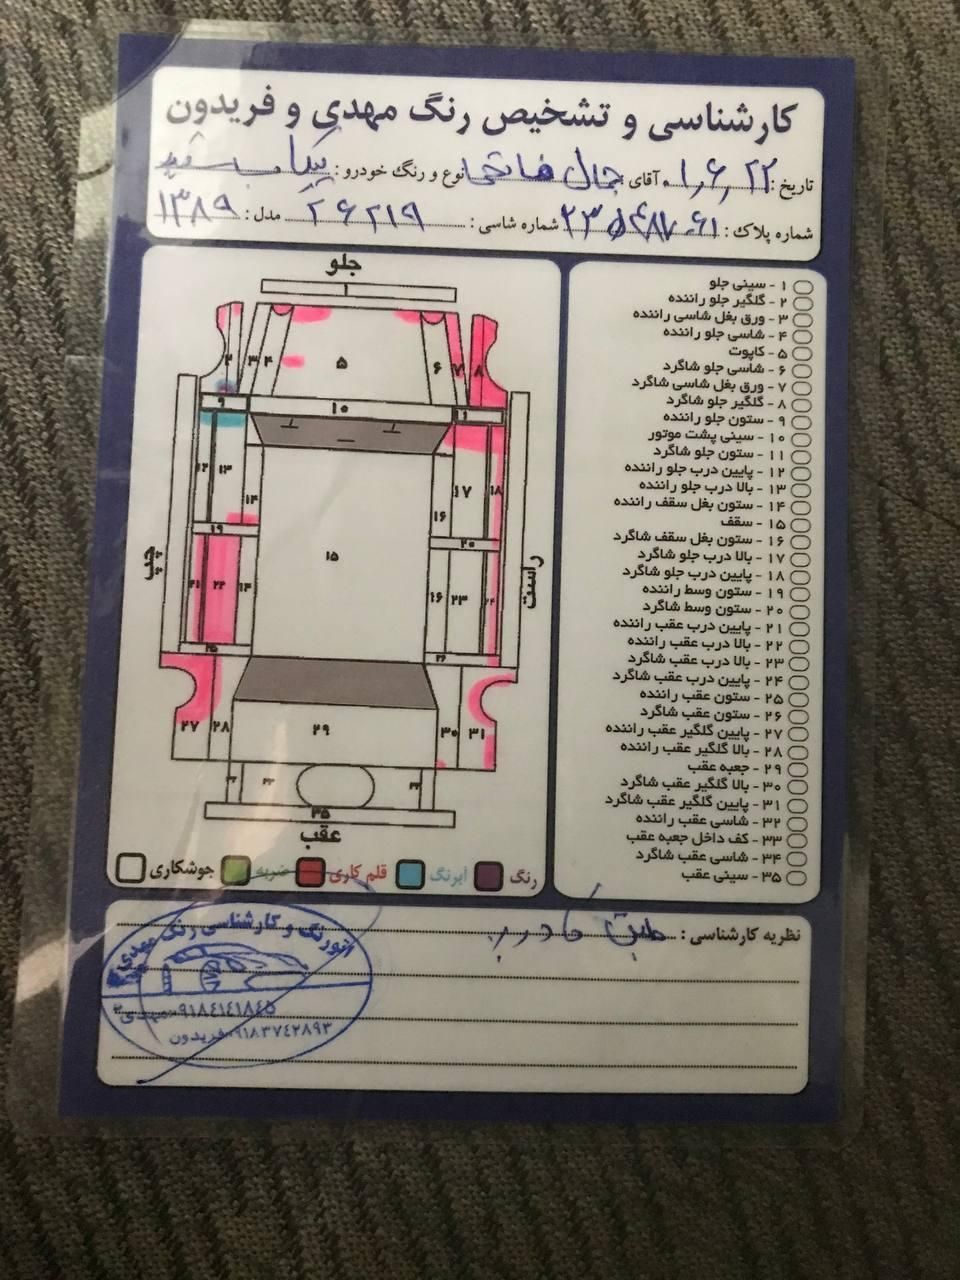 کارشناسی و تشخیص رنگ مهدی و فریدون
تاریخ: ۰۱,۶,۲۲ آقای جمال فتاحی نوع و رنگ خودرو: تیبا سفید
شماره پلاک: شماره شاسی: ۲۶۲۱۹ مدل: ۱۳۸۹
جلو
۱
۲ ۳ ۴ ۵ ۶ ۷ ۸
۹ ۱۰ ۱۱
۱۲ ۱۳ ۱۴ ۱۵ ۱۶ ۱۷ ۱۸
۱۹ ۲۰
چپ
راست
۲۱ ۲۲ ۱۴ ۱۶ ۲۳ ۲۴
۲۵ ۲۶
۲۷ ۲۸ ۲۹ ۳۰ ۳۱
۳۵
عقب
رنگ آبرنگ قلم کاری ضربه جوشکاری
۱ - سینی جلو
۲ - گلگیر جلو راننده
۳ - ورق بغل شاسی راننده
۴ - شاسی جلو راننده
۵ - کاپوت
۶ - شاسی جلو شاگرد
۷ - ورق بغل شاسی شاگرد
۸ - گلگیر جلو شاگرد
۹ - ستون جلو راننده
۱۰ - سینی پشت موتور
۱۱ - ستون جلو شاگرد
۱۲ - پایین درب جلو راننده
۱۳ - بالا درب جلو راننده
۱۴ - ستون بغل سقف راننده
۱۵ - سقف
۱۶ - ستون بغل سقف شاگرد
۱۷ - بالا درب جلو شاگرد
۱۸ - پایین درب جلو شاگرد
۱۹ - ستون وسط راننده
۲۰ - ستون وسط شاگرد
۲۱ - پایین درب عقب راننده
۲۲ - بالا درب عقب راننده
۲۳ - بالا درب عقب شاگرد
۲۴ - پایین درب عقب شاگرد
۲۵ - ستون عقب راننده
۲۶ - ستون عقب شاگرد
۲۷ - پایین گلگیر عقب راننده
۲۸ - بالا گلگیر عقب راننده
۲۹ - جعبه عقب
۳۰ - بالا گلگیر عقب شاگرد
۳۱ - پایین گلگیر عقب شاگرد
۳۲ - شاسی عقب راننده
۳۳ - کف داخل جعبه عقب
۳۴ - شاسی عقب شاگرد
۳۵ - سینی عقب
نظریه کارشناسی: طبق کادر
اتورنگ و کارشناسی رنگ مهدی
۰۹۱۸۴۱۴۱۸۴۵ مهدی
۰۹۱۸۳۷۴۲۸۹۳ فریدون